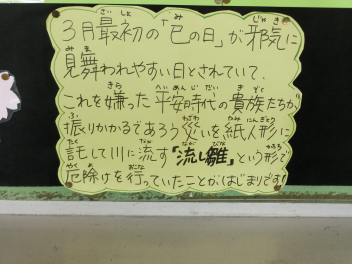 3月最初の「巳の日」が邪気に
見舞われやすい日とされていて、
これを嫌った平安時代の貴族たちが、
振りかかるであろう災いを紙人形に
託して川に流す「流し雛」という形で
厄除けを行っていたことがはじまりです!